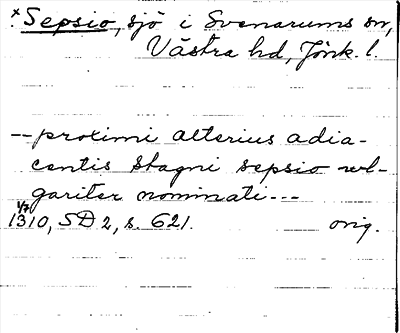 ×Sepsio, sjö i Svenarums sn,
Västra hd, Jönk. l.
-- proximi alterius adia-
centis stagni sepsio wl-
gariter nominati ---
1/7 1310, SD 2, s. 621. orig.